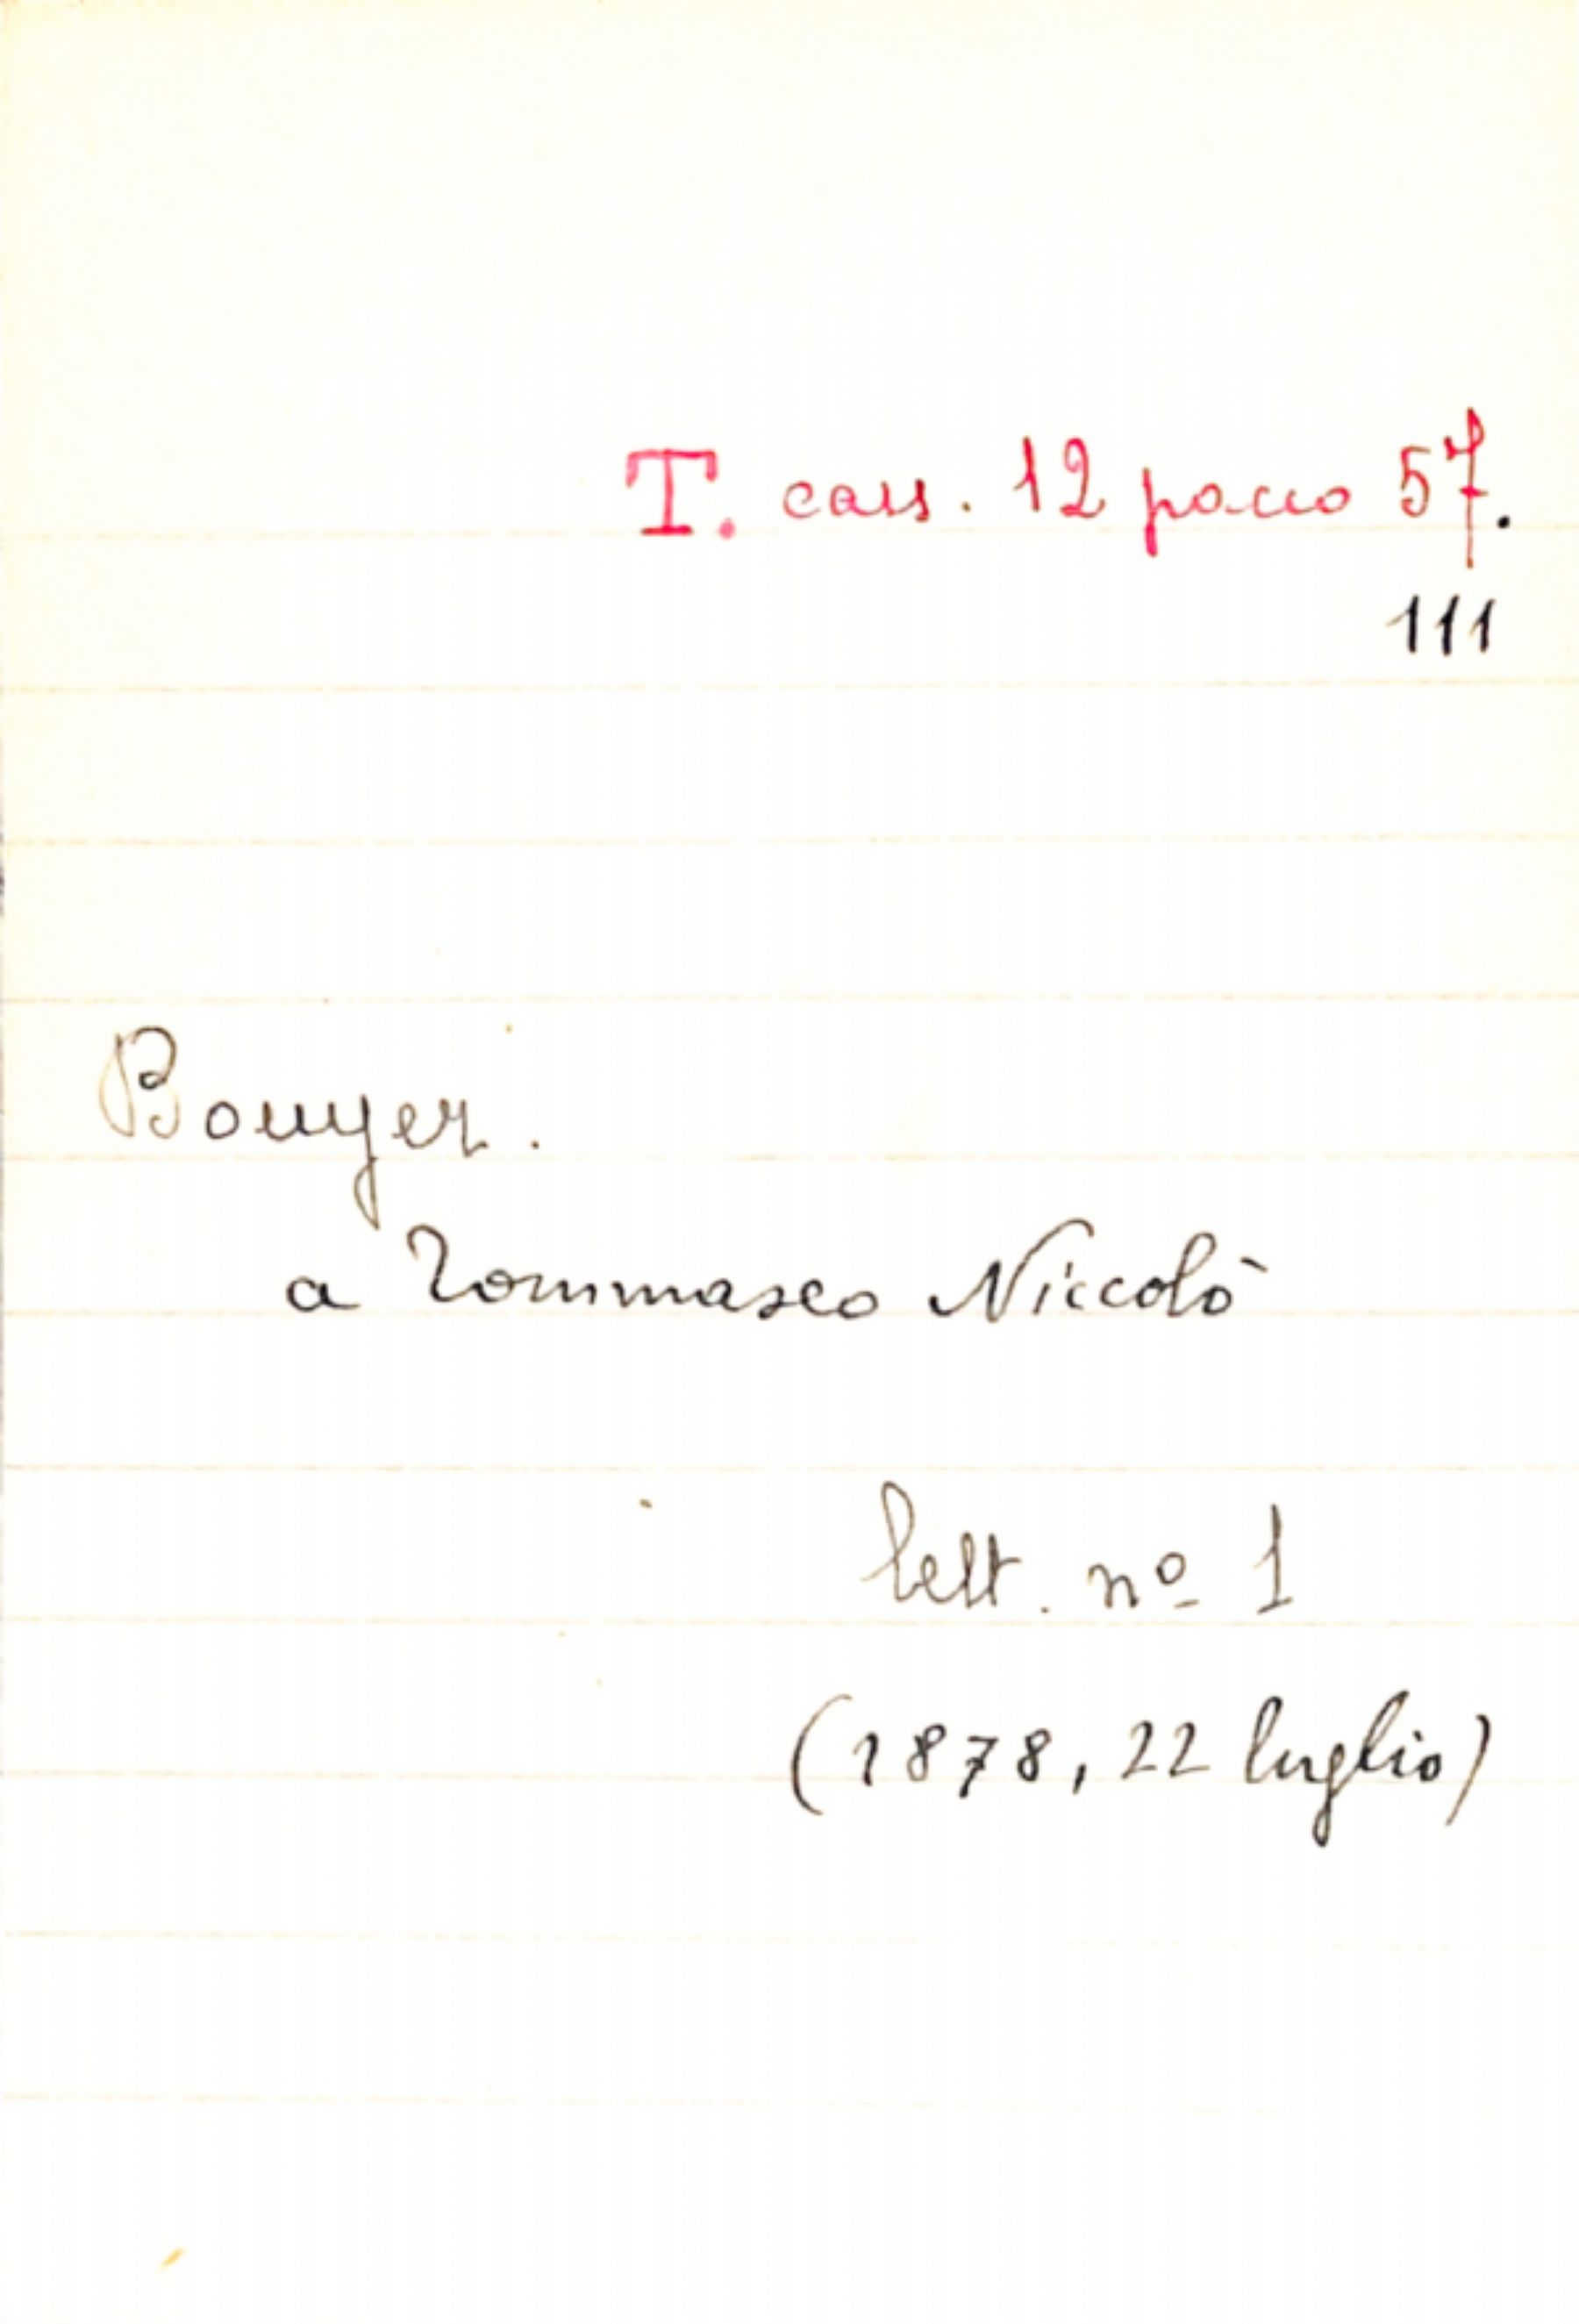 T. cass. 12 pacco 57.
111
Bouyer.
a Tommaseo Niccolò
lett. nº 1
(1878, 22 luglio)